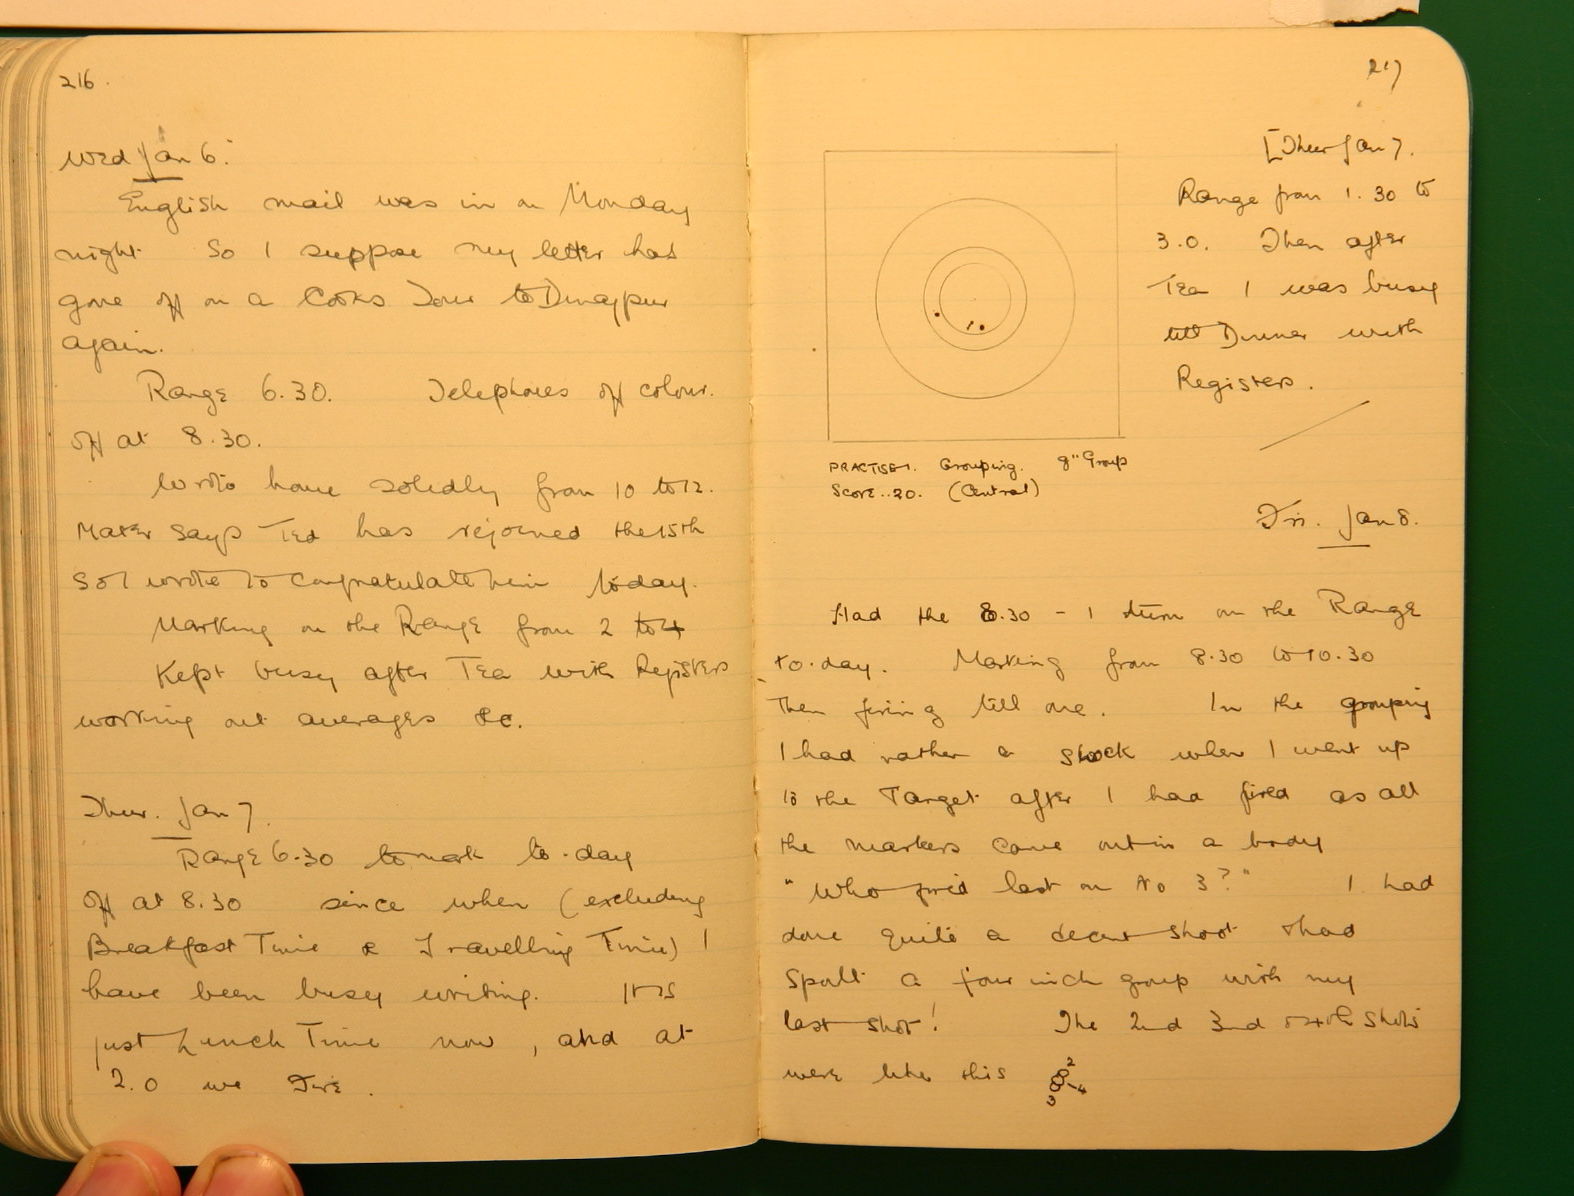 216.
Wed Jan 6.
English mail was in on Monday
night. So I suppose my letter has
gone off on a Cooks Tour to Dinajpur
again.
Range 6.30. Telephones off colour.
off at 8.30.
Wrote home solidly from 10 to 12.
Mater says Ted has rejoined the 15th
So I wrote to congratulate him today.
Marking on the Range from 2 to 4
Kept busy after Tea with Registers
working out averages &c.
Thur. Jan 7.
Range 6.30 to mark to-day
off at 8.30 since when (excluding
Breakfast Time & Travelling Time) I
have been busy writing. It is
just Lunch Time now, and at
2.0 we Fire.
217
[Thur Jan 7.
Range from 1.30 to
3.0. Then after
Tea I was busy
till Dinner with
Registers.
PRACTISE 1. Grouping. 8" Group
Score..20. (Central)
Fri. Jan 8.
Had the 8.30 - 1 turn on the Range
to-day. Marking from 8.30 to 10.30
Then firing till one. In the grouping
I had rather a shock when I went up
to the Target after I had fired as all
the markers came out in a body
"Who fired last on No 3?" I had
done quite a decent shoot & had
Spoilt a four inch group with my
last shot! The 2nd 3rd & 4th Shots
were like this 2
4
3